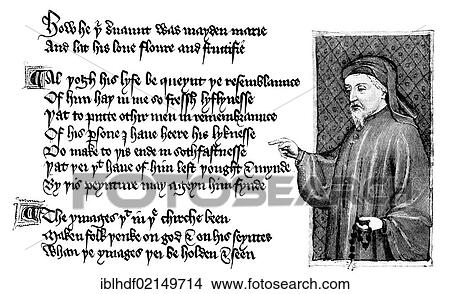 How he þi seruaunt was mayden marie
And lat his loue floure and fructifie
Al þogh his lyfe be queynt þe resemblaunce
Of him haþ in me so fressh lyflynesse
Þat to putte othir men in remembraunce
Of his persone I haue heere his lyknesse
Do make to þis ende in sothfastnesse
Þat þei þt haue of him lest þought & mynde
By þis peynture may ageyn him fynde
The ymages þt in þe chirche been
Maken folk þenke on god & on his seyntes
Whan þe ymages þei be holden & seen
Fotosearch
iblhdf02149714 www.fotosearch.com